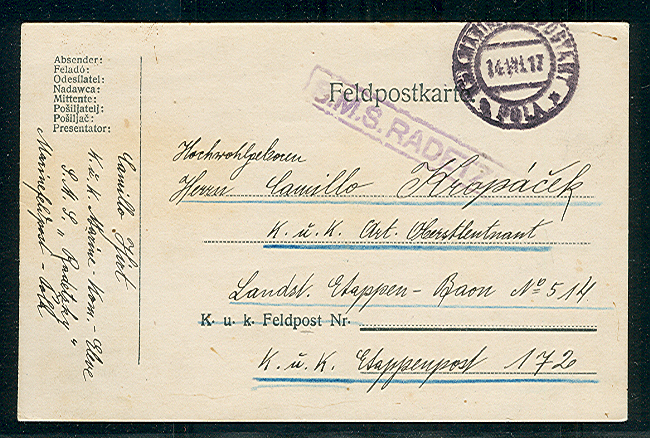 Absender:
Feladó:
Odesílatel:
Nadawca:
Mittente:
Pošiljatelj:
Pošiljač:
Presentator:
Camillo
K. u. k. Marine-Kom.-Eleve
S. M. S. "Radetzky"
Marinefeldpost - Pola
Feldpostkarte
S.M.S. RADETZ
K.u.K. MARINE
14.VI.17
POLA
Hochwohlgeboren
Herrn Camillo Kropáček
K. u. K. Art. Oberstleutnant
Landst. Etappen-Baon No 514
K. u. k. Feldpost Nr.
K. u. K. Etappenpost 172